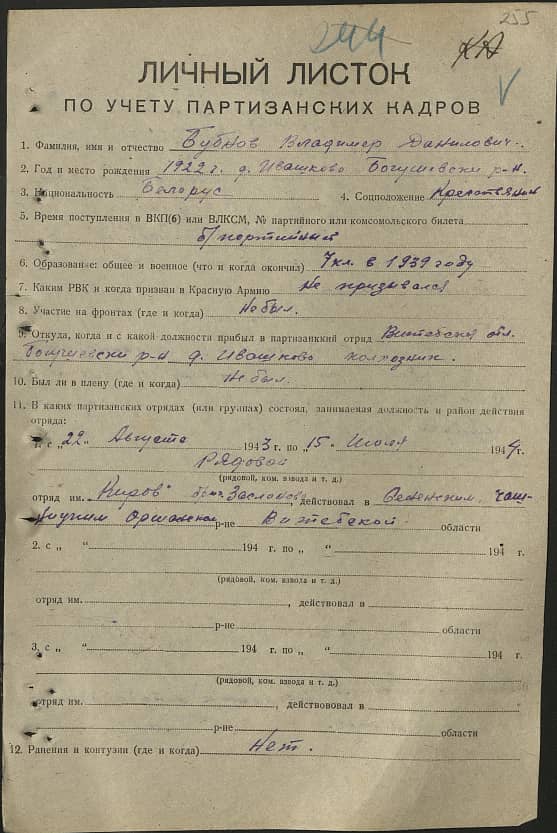 255
244
КА
V
ЛИЧНЫЙ ЛИСТОК
ПО УЧЕТУ ПАРТИЗАНСКИХ КАДРОВ
1. Фамилия, имя и отчество Бубнов Владимер Данилович.
2. Год и место рождения 1922 г. д. Ивашково Богушевски р-н.
3. Национальность Белорус 4. Соцположение Крестьянин
5. Время поступления в ВКП(б) или ВЛКСМ, № партийного или комсомольского билета
б/партийный
6. Образование: общее и военное (что и когда окончил) 7 кл. в 1939 году
7. Каким РВК и когда призван в Красную Армию Не призывался
8. Участие на фронтах (где и когда) Не был.
9. Откуда, когда и с какой должности прибыл в партизанкий отряд Витебская обл.
Богушевски р-н д. Ивашково колхозник.
10. Был ли в плену (где и когда) Не был.
11. В каких партизанских отрядах (или группах) состоял, занимаемая должность и район действия
отряда:
1. с „22„ Августа 1943 г. по „15„ Июля 1944 г.
Рядовой
(рядовой, ком. взвода и т. д.)
отряд им. Киров" Заслонова, действовал в Сененским, чаш-
никским Оршанском р-не Витебской области
2. с „ “ 194 г. по „ “ 194 г.
(рядовой, ком. взвода и т. д.)
отряд им. , действовал в
р-не области
3. с „ “ 194 г. по „ “ 194 г.
(рядовой, ком. взвода и т. д.)
отряд им. , действововал в
р-не области
12. Ранения и контузии (где и когда) Нет.